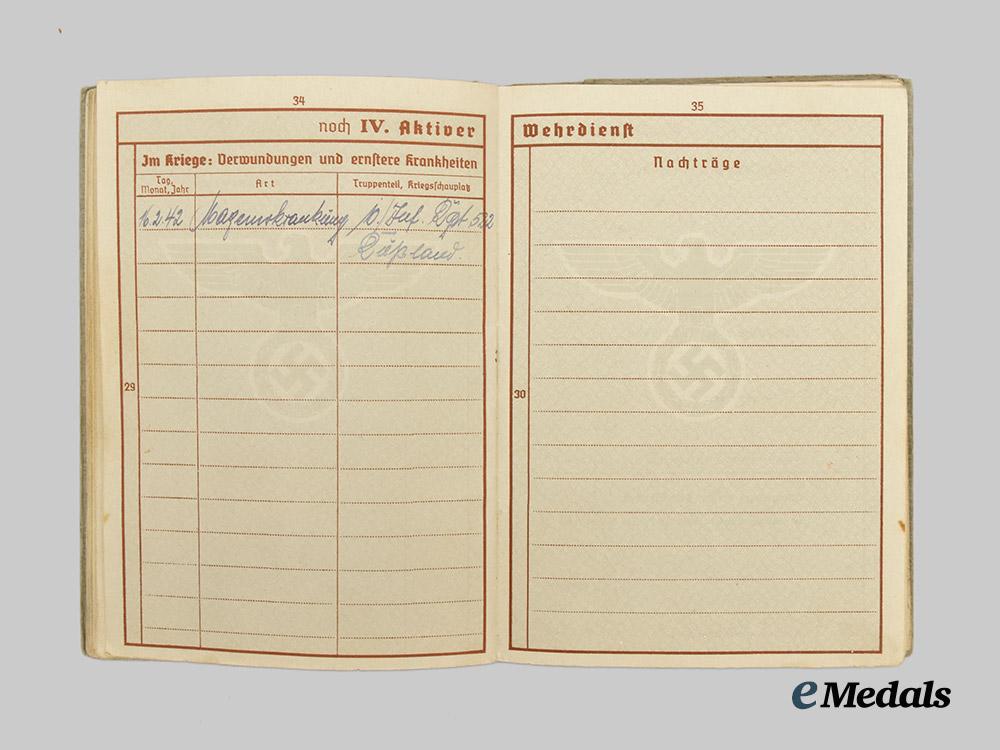 34
noch IV. Aktiver
Im Kriege: Verwundungen und ernstere Krankheiten
Tag, Monat, Jahr
Art
Truppenteil, Kriegsschauplatz
16.2.42 Magenerkrankung 10./Inf. Rgt. 522
Rußland.
29
35
Wehrdienst
Nachträge
30
eMedals